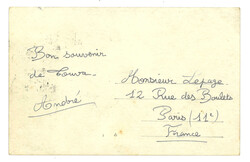 Bon souvenir
de Tours
André
Monsieur Lepage
12 Rue des Boulets
Paris (11e)
France